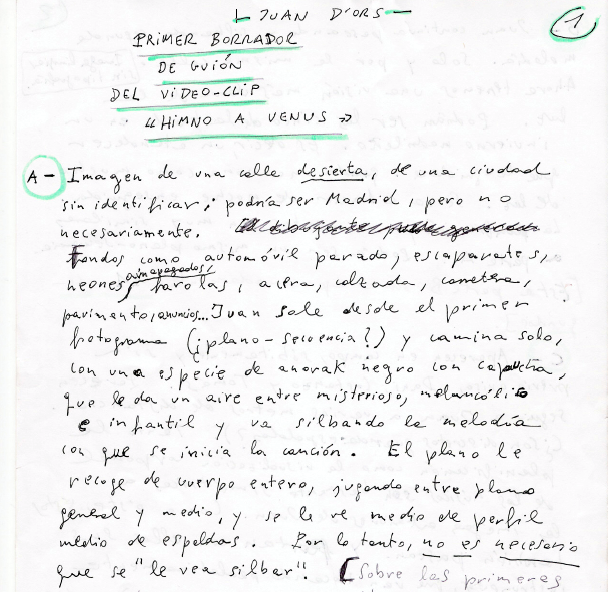 JUAN D'ORS
1
PRIMER BORRADOR
DE GUIÓN
DEL VIDEO-CLIP
"HIMNO A VENUS"
A- Imagen de una calle desierta, de una ciudad
sin identificar; podría ser Madrid, pero no
necesariamente.
Fondos como automóvil parado, escaparates,
neones, farolas, acera, calzada, carretera,
aún apagados,
pavimento, anuncios... Juan sale desde el primer
fotograma (¿plano-secuencia?) y camina solo,
con una especie de anorak negro con capucha,
que le da un aire entre misterioso, melancólico
e infantil y va silbando la melodía
con que se inicia la canción. El plano le
recoge de cuerpo entero, jugando entre plano
general y medio, y se le ve medio de perfil
medio de espaldas. Por lo tanto, no es necesario
que se "le vea silbar". [Sobre las primeras